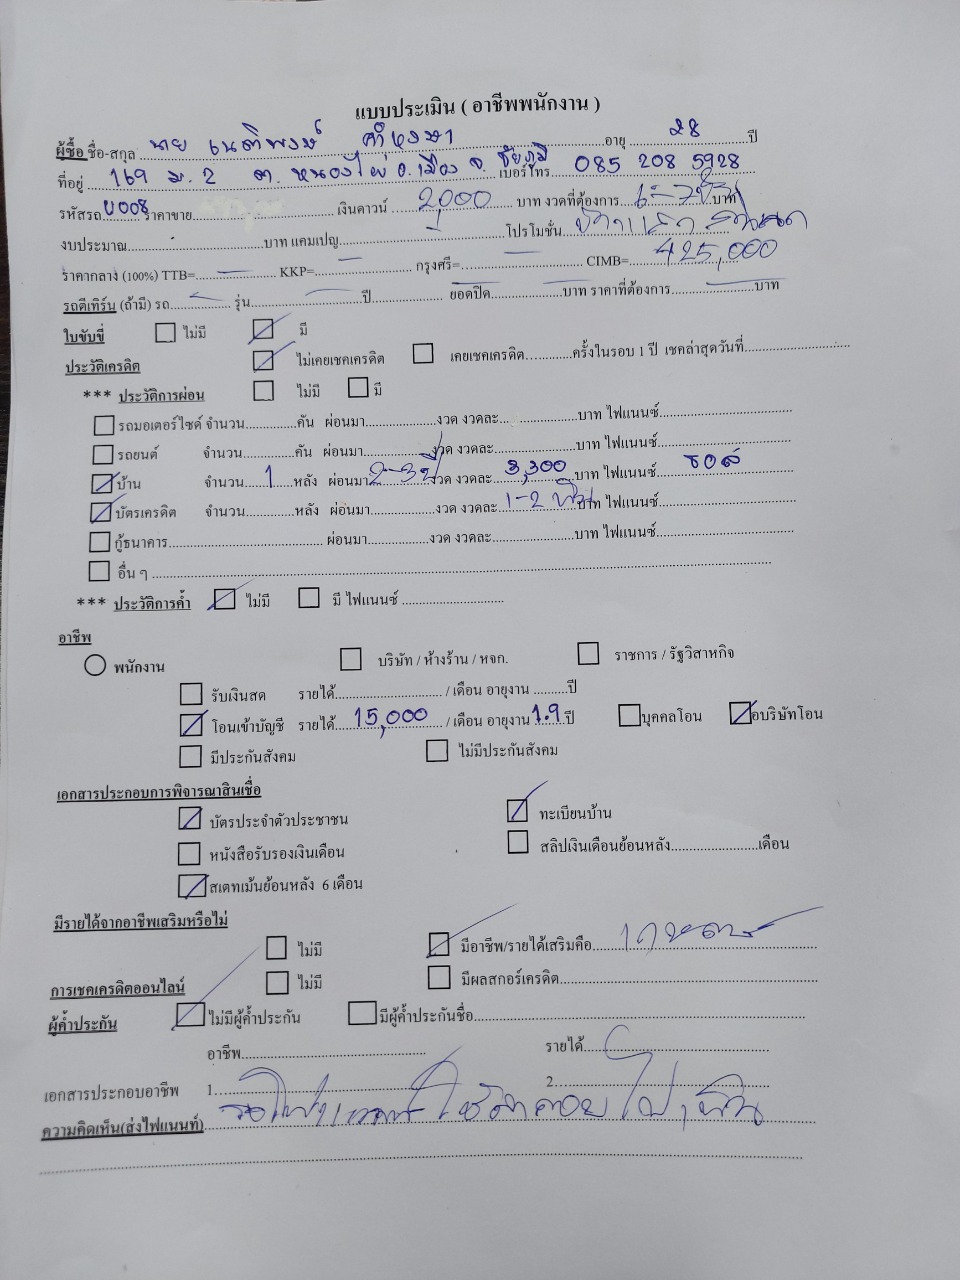 แบบประเมิน ( อาชีพพนักงาน )
ผู้ซื้อ ชื่อ-สกุล นาย เนติพงษ์ คำหงษา อายุ 28 ปี
ที่อยู่ 169 ม. 2 ต. หนองไผ่ อ. เมือง จ. ชัยภูมิ เบอร์โทร 085 208 5928
รหัสรถ U008 ราคาขาย เงินดาวน์ 2,000 บาท งวดที่ต้องการ 6-7ปี บาท
งบประมาณ บาท แคมเปญ โปรโมชั่น
ราคากลาง (100%) TTB= KKP= กรุงศรี= CIMB= 425,000
รถตีเทิร์น (ถ้ามี) รถ รุ่น ปี ยอดปิด บาท ราคาที่ต้องการ บาท
ใบขับขี่ ไม่มี มี
ประวัติเครดิต ไม่เคยเชคเครดิต เคยเชคเครดิต ครั้งในรอบ 1 ปี เชคล่าสุดวันที่
*** ประวัติการผ่อน ไม่มี มี
รถมอเตอร์ไซด์ จำนวน คัน ผ่อนมา งวด งวดละ บาท ไฟแนนซ์
รถยนต์ จำนวน คัน ผ่อนมา งวด งวดละ บาท ไฟแนนซ์
บ้าน จำนวน 1 หลัง ผ่อนมา 2-3ปี งวด งวดละ 3,300 บาท ไฟแนนซ์ ธอส
บัตรเครดิต จำนวน หลัง ผ่อนมา งวด งวดละ 1-2 พัน บาท ไฟแนนซ์
กู้ธนาคาร ผ่อนมา งวด งวดละ บาท ไฟแนนซ์
อื่น ๆ
*** ประวัติการค้ำ ไม่มี มี ไฟแนนซ์
อาชีพ
พนักงาน บริษัท / ห้างร้าน / หจก. ราชการ / รัฐวิสาหกิจ
รับเงินสด รายได้ / เดือน อายุงาน ปี
โอนเข้าบัญชี รายได้ 15,000 / เดือน อายุงาน 1.9 ปี บุคคลโอน บริษัทโอน
มีประกันสังคม ไม่มีประกันสังคม
เอกสารประกอบการพิจารณาสินเชื่อ
บัตรประจำตัวประชาชน ทะเบียนบ้าน
หนังสือรับรองเงินเดือน สลิปเงินเดือนย้อนหลัง เดือน
สเตทเม้นย้อนหลัง 6 เดือน
มีรายได้จากอาชีพเสริมหรือไม่
ไม่มี มีอาชีพ/รายได้เสริมคือ
การเชคเครดิตออนไลน์ ไม่มี มีผลสกอร์เครดิต
ผู้ค้ำประกัน ไม่มีผู้ค้ำประกัน มีผู้ค้ำประกันชื่อ
อาชีพ รายได้
เอกสารประกอบอาชีพ 1 2
ความคิดเห็น(ส่งไฟแนนท์)